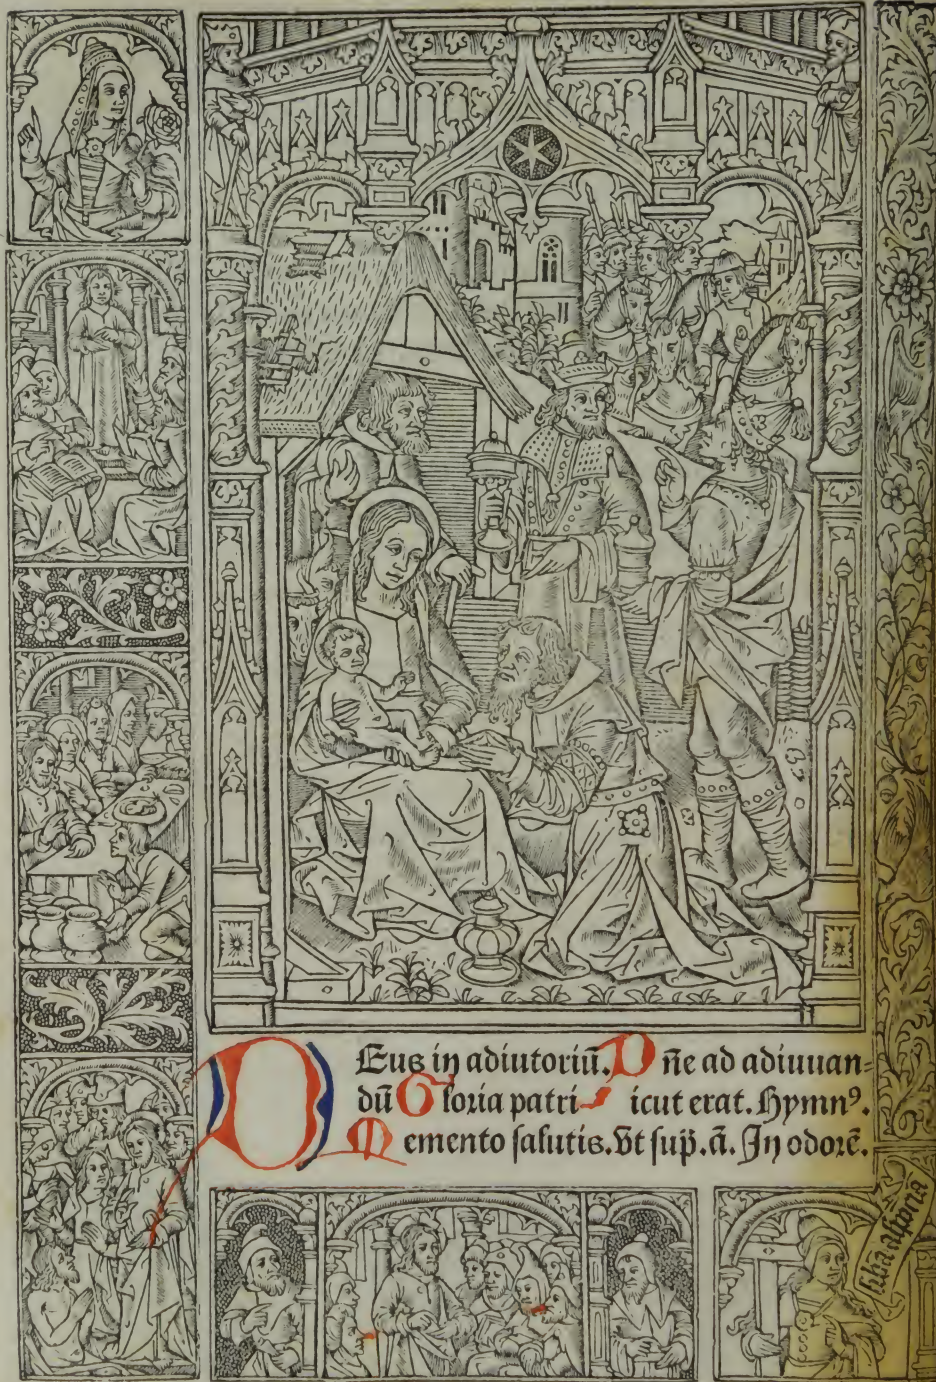 Deus in adiutoriū. Dñe ad adiuuan=
dū Gloria patri Sicut erat. Hymnꝰ.
Memento salutis. Vt sup̄. ā. In odorē.